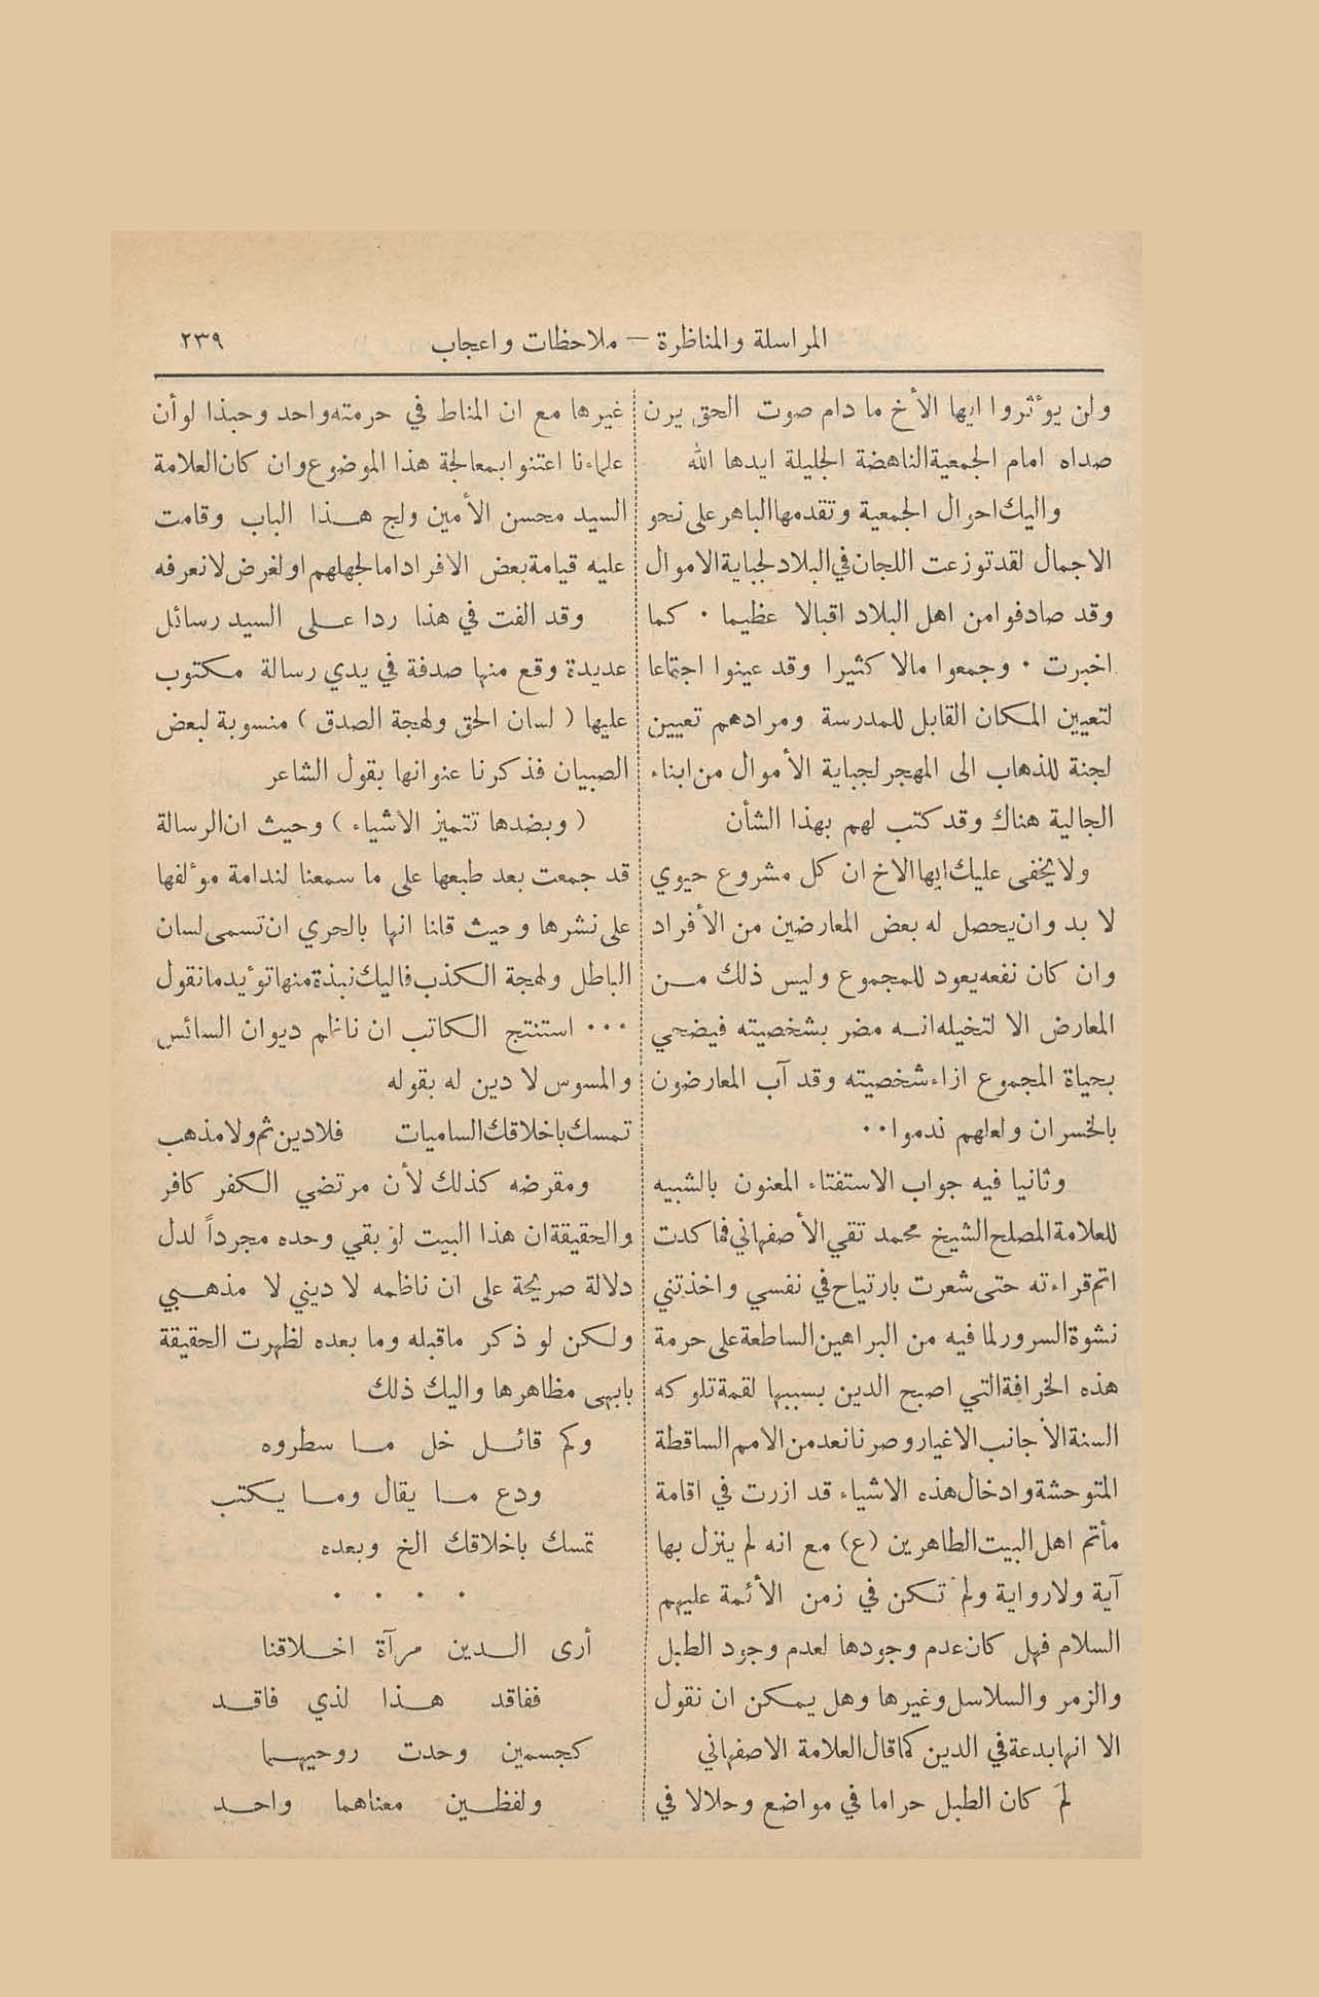 المراسلة والمناظرة — ملاحظات واعجاب ٢٣٩
ولن يوءثروا ايها الأخ ما دام صوت الحق يرن
صداه امام الجمعية الناهضة الجليلة ايدها الله
واليك احوال الجمعية وتقدمها الباهر على نحو
الاجمال لقد توزعت اللجان في البلاد لجباية الاموال
وقد صادفوا من اهل البلاد اقبالا عظيما ٠ كما
اخبرت ٠ وجمعوا مالا كثيرا وقد عينوا اجتماعا
لتعيين المكان القابل للمدرسة ومرادهم تعيين
لجنة للذهاب الى المهجر لجباية الأموال من ابناء
الجالية هناك وقد كتب لهم بهذا الشأن
ولا يخفى عليك ايها الاخ ان كل مشروع حيوي
لا بد وان يحصل له بعض المعارضين من الأفراد
وان كان نفعه يعود للمجموع وليس ذلك مــن
المعارض الا لتخيله انــه مضر بشخصيته فيضحي
بحياة المجموع ازاء شخصيته وقد آب المعارضون
بالخسران ولعلهم ندموا٠٠
وثانيا فيه جواب الاستفتاء المعنون بالشبيه
للعلامة المصلح الشيخ محمد تقي الأصفهاني فما كدت
اتم قراءته حتى شعرت بارتياح في نفسي واخذتني
نشوة السرور لما فيه من البراهين الساطعة على حرمة
هذه الخرافة التي اصبح الدين بسببها لقمة تلوكه
السنة الأجانب الاغيار وصرنا نعد من الامم الساقطة
المتوحشة وادخال هذه الاشياء قد ازرت في اقامة
مأتم اهل البيت الطاهرين (ع) مع انه لم ينزل بها
آية ولا رواية ولم تكن في زمن الأئمة عليهم
السلام فهل كان عدم وجودها لعدم وجود الطبل
والزمر والسلاسل وغيرها وهل يمكن ان نقول
الا انها بدعة في الدين كما قال العلامة الاصفهاني
لمَ كان الطبل حراما في مواضع وحلالا في
غيرها مع ان المناط في حرمته واحد وحبذا لو أن
علماءنا اعتنوا بمعالجة هذا الموضوع وان كان العلامة
السيد محسن الأمين ولج هــذا الباب وقامت
عليه قيامة بعض الافراد اما لجهلهم او لغرض لا نعرفه
وقد الفت في هذا ردا عــلى السيد رسائل
عديدة وقع منها صدفة في يدي رسالة مكتوب
عليها ( لسان الحق ولهجة الصدق ) منسوبة لبعض
الصبيان فذكرنا عنوانها بقول الشاعر
( وبضدها تتميز الاشياء ) وحيث ان الرسالة
قد جمعت بعد طبعها على ما سمعنا لندامة موءلفها
على نشرها وحيث قلنا انها بالحري ان تسمى لسان
الباطل ولهجة الكذب فاليك نبذة منها توءيد ما نقول
٠٠٠ استنتج الكاتب ان ناظم ديوان السائس
والمسوس لا دين له بقوله
تمسك باخلاقك الساميات فلا دين ثم ولا مذهب
ومقرضه كذلك لأن مرتضي الكفر كافر
والحقيقة ان هذا البيت لو بقي وحده مجرداً لدل
دلالة صريحة على ان ناظمه لا ديني لا مذهــبي
ولكن لو ذكر ما قبله وما بعده لظهرت الحقيقة
بابهى مظاهرها واليك ذلك
وكم قائــل خل مــا سطروه
ودع مــا يقال ومــا يــكتب
تمسك باخلاقك الخ وبعده
٠ ٠ ٠ ٠
أرى الــدين مرآة اخــلاقنا
ففاقد هــذا لذي فاقــد
كجسمين وحدت روحيهــما
ولفظــين معناهما واحــد